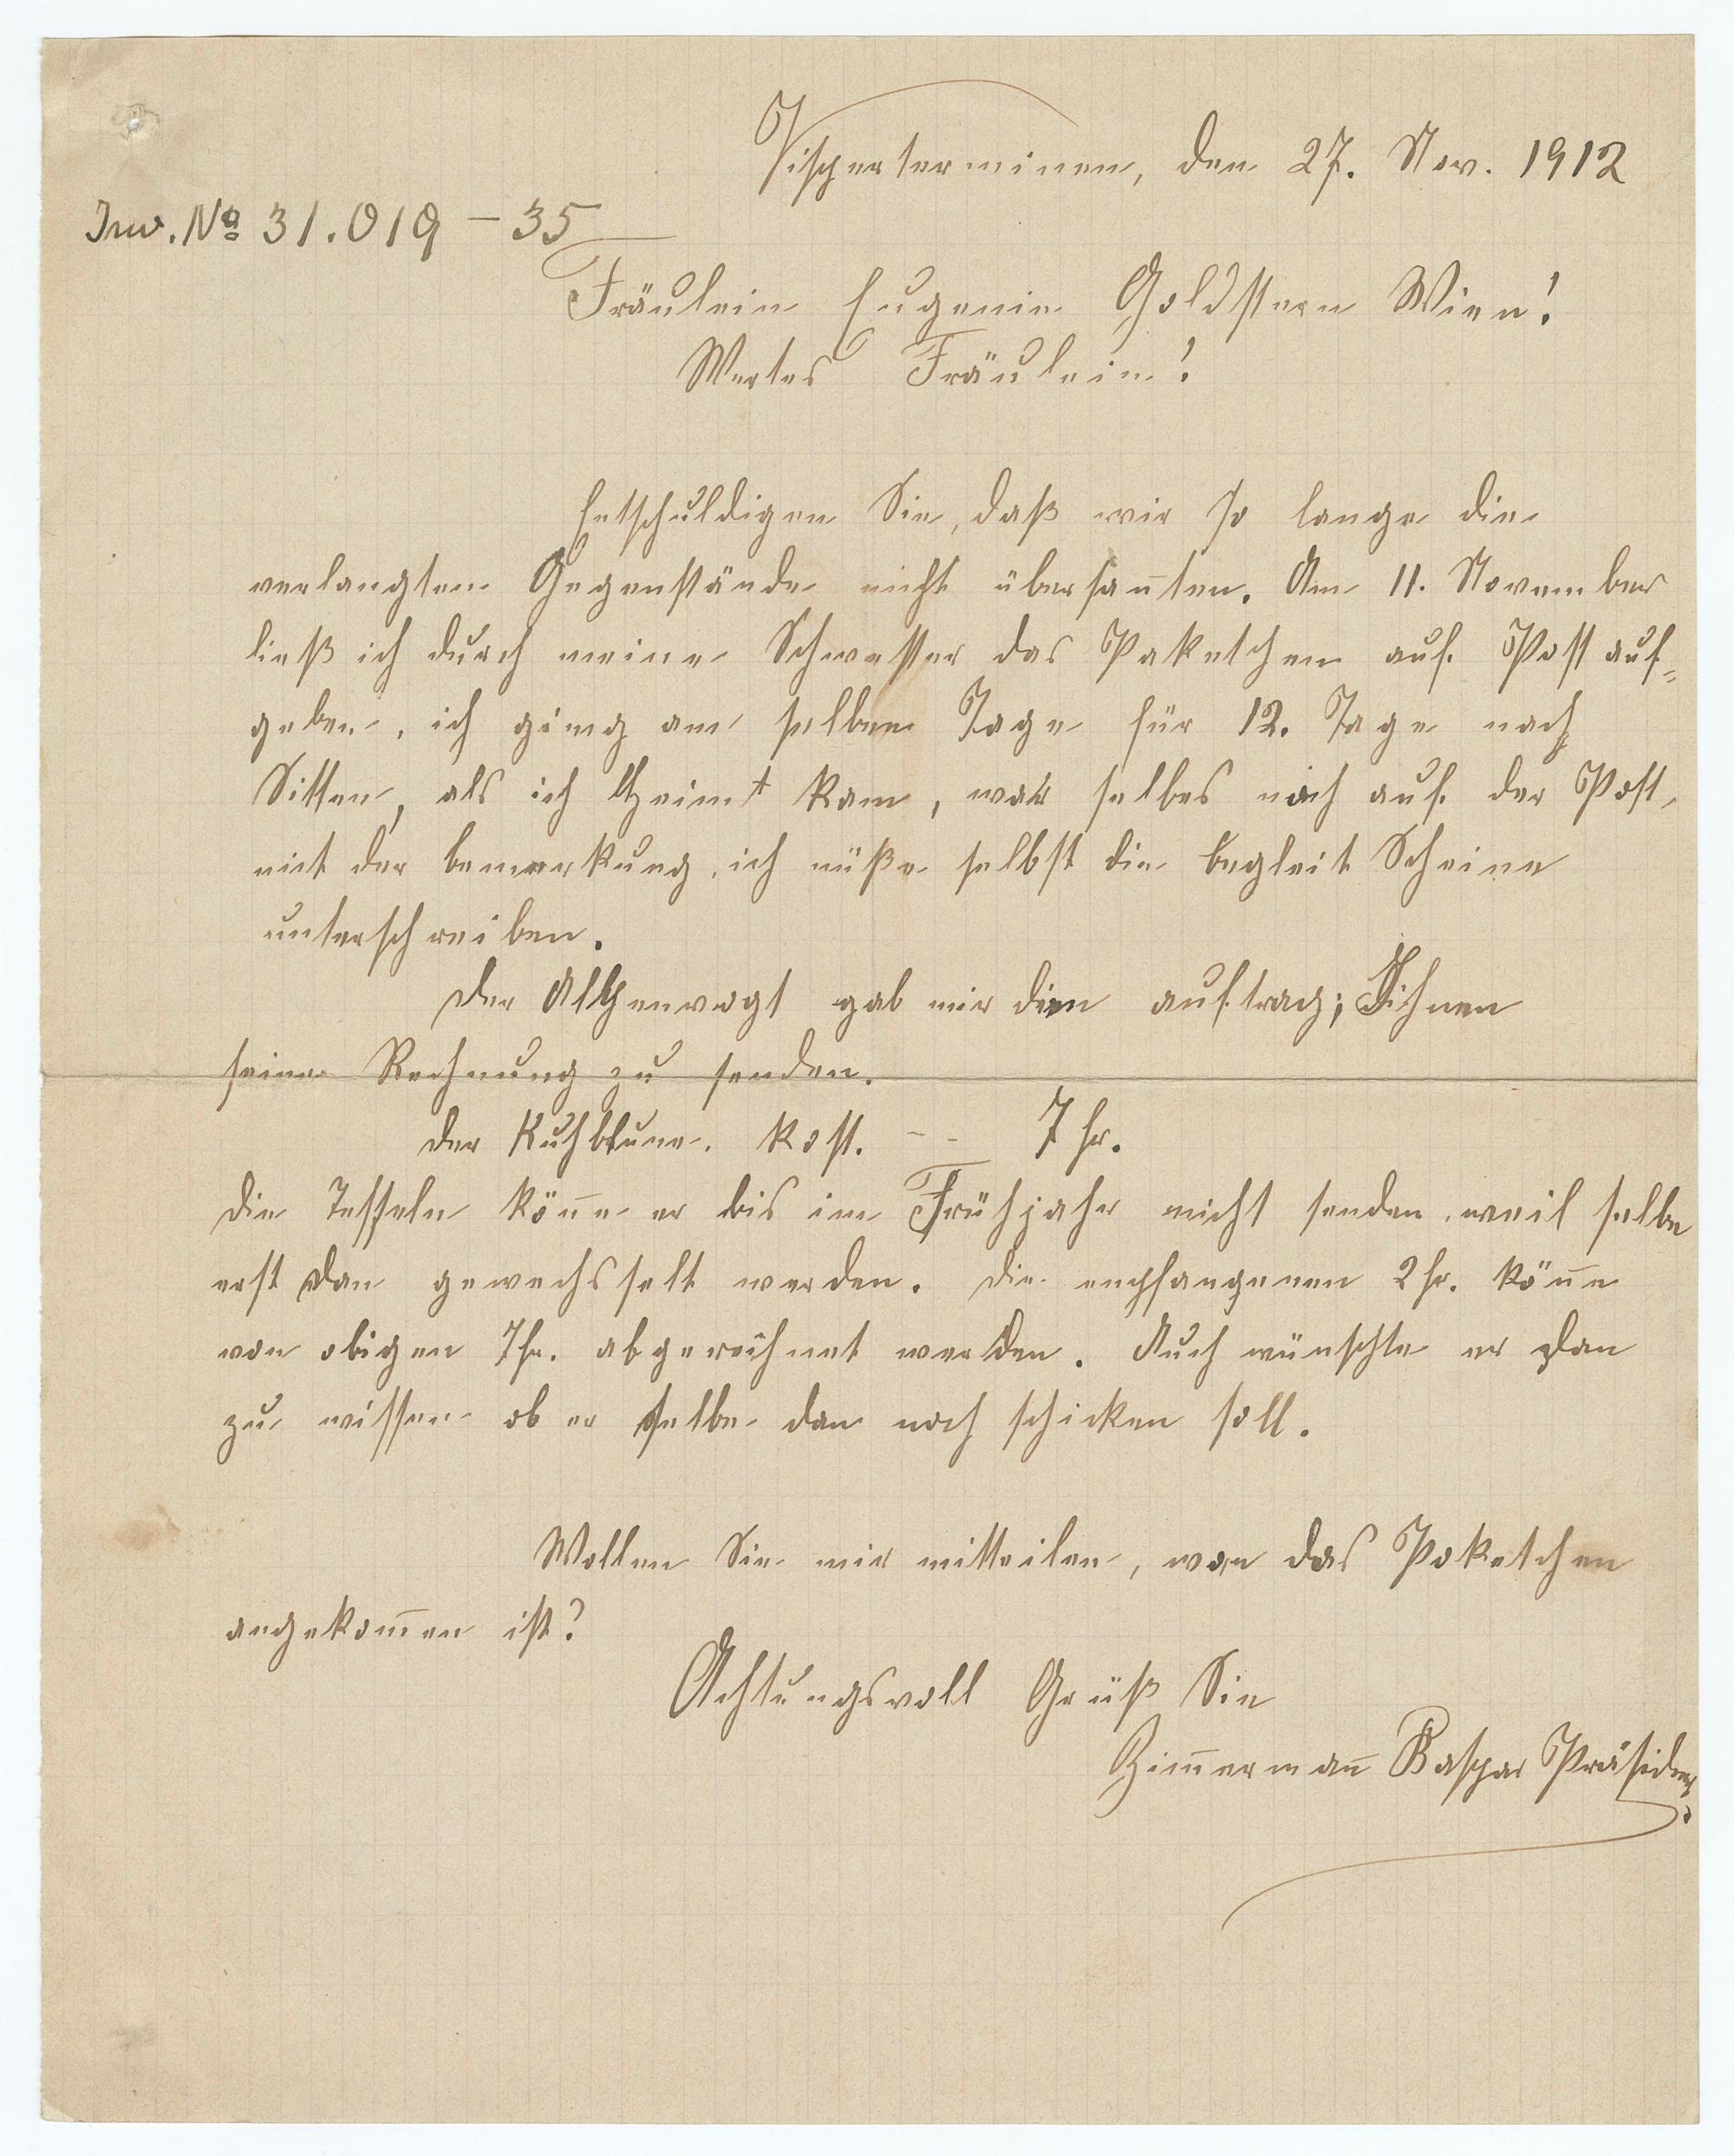 Visperterminen, den 27. Nov. 1912
Inv. No 31.019 – 35
Fräulein Eugenie Goldstern Wien!
Wertes Fräulein!
Entschuldigen Sie, daß wir so lange die
verlangten Gegenstände nicht übersan̄ten. Am 11. November
ließ ich durch meine Schwester das Paketchen auf Post auf=
geben, ich ging am selben Tage für 12. Tage nach
Sitten, als ich heim kam, war selbes noch auf der Post,
mit der bemerkung, ich müße selbst die begleit Scheine
unterschreiben.
Der Alpenvogt gab mir den auftrag; Ihnen
seine Rechnung zu senden.
Der Kuhblume. Kost. - - 7 fr.
Die Tesseln kön̄e er bis im Frühjahr nicht senden, weil selbe
erst dan gewechsselt werden. Die empfangenen 2 fr. kön̄e
von obigen 7 fr. abgerechnet werden. Auch wünschte er dan
zu wissen ob er selbe dan noch schicken soll.
Wollen Sie mir mitteilen, wan das Paketchen
angekom̄en ist?
Achtungsvoll Grüß Sie
Zim̄erman̄ Kaspar Präsident